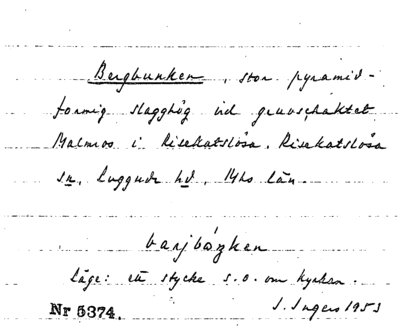 Bergbunken, stor pyramid-
formig slagghög vid gruvschaktet
Malmros i Risekatslösa, Risekatslösa
sn, Luggude hd, Mhs län.
barjbåŋken
Läge: ett stycke s.o. om kyrkan.
Nr 5374. S. Ingers 1953